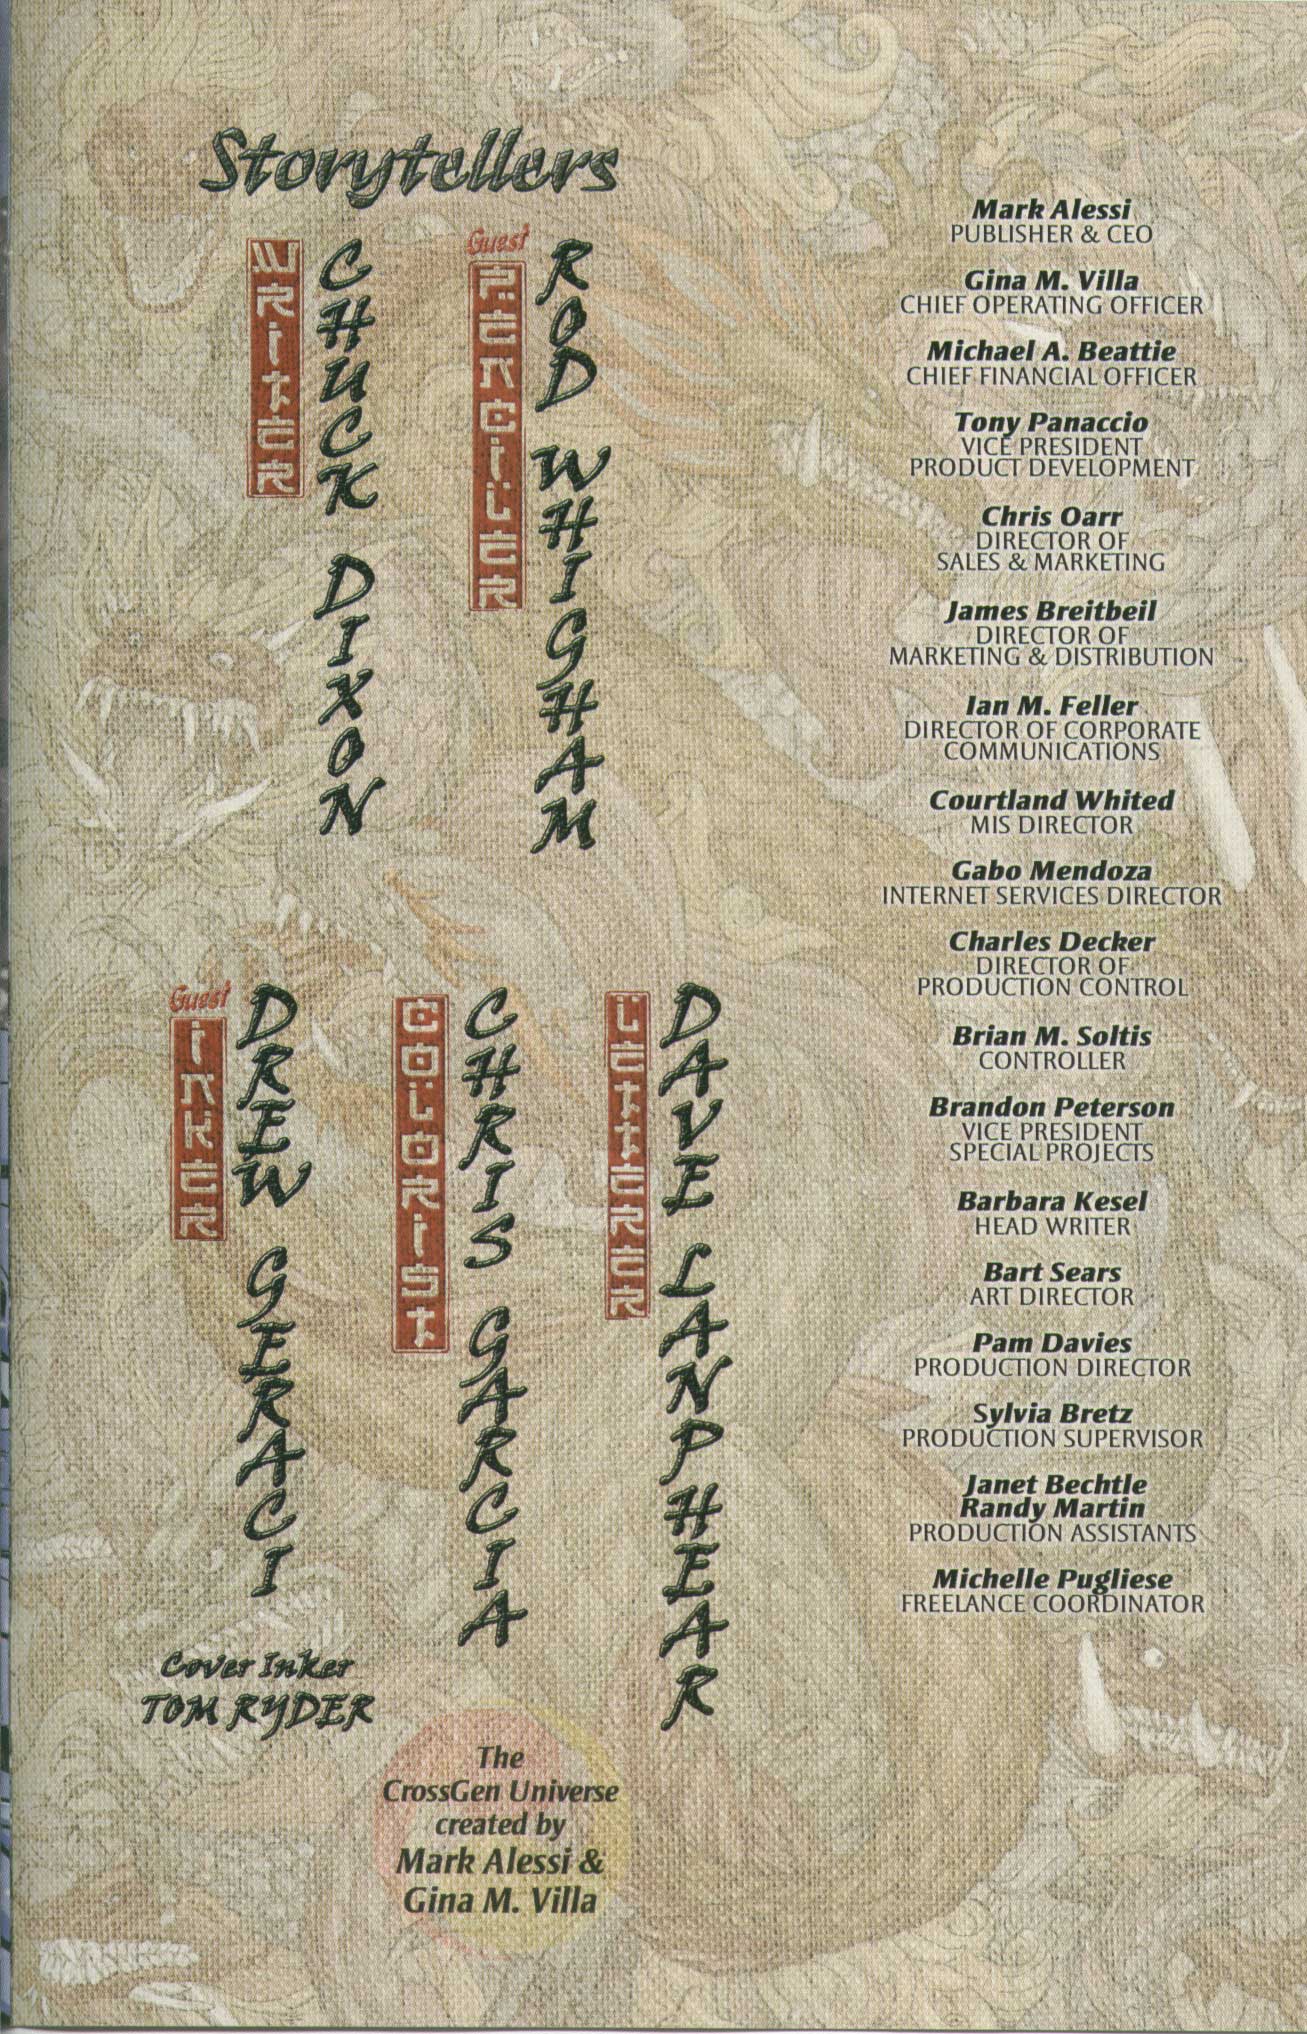 Storytellers
WRITER
CHUCK DIXON
Guest
PENCILER
ROD WHIGHAM
Guest
INKER
DREW GERACI
COLORIST
CHRIS GARCIA
LETTERER
DAVE LANPHEAR
Cover Inker
TOM RYDER
The
CrossGen Universe
created by
Mark Alessi &
Gina M. Villa
Mark Alessi
PUBLISHER & CEO
Gina M. Villa
CHIEF OPERATING OFFICER
Michael A. Beattie
CHIEF FINANCIAL OFFICER
Tony Panaccio
VICE PRESIDENT
PRODUCT DEVELOPMENT
Chris Oarr
DIRECTOR OF
SALES & MARKETING
James Breitbeil
DIRECTOR OF
MARKETING & DISTRIBUTION
Ian M. Feller
DIRECTOR OF CORPORATE
COMMUNICATIONS
Courtland Whited
MIS DIRECTOR
Gabo Mendoza
INTERNET SERVICES DIRECTOR
Charles Decker
DIRECTOR OF
PRODUCTION CONTROL
Brian M. Soltis
CONTROLLER
Brandon Peterson
VICE PRESIDENT
SPECIAL PROJECTS
Barbara Kesel
HEAD WRITER
Bart Sears
ART DIRECTOR
Pam Davies
PRODUCTION DIRECTOR
Sylvia Bretz
PRODUCTION SUPERVISOR
Janet Bechtle
Randy Martin
PRODUCTION ASSISTANTS
Michelle Pugliese
FREELANCE COORDINATOR